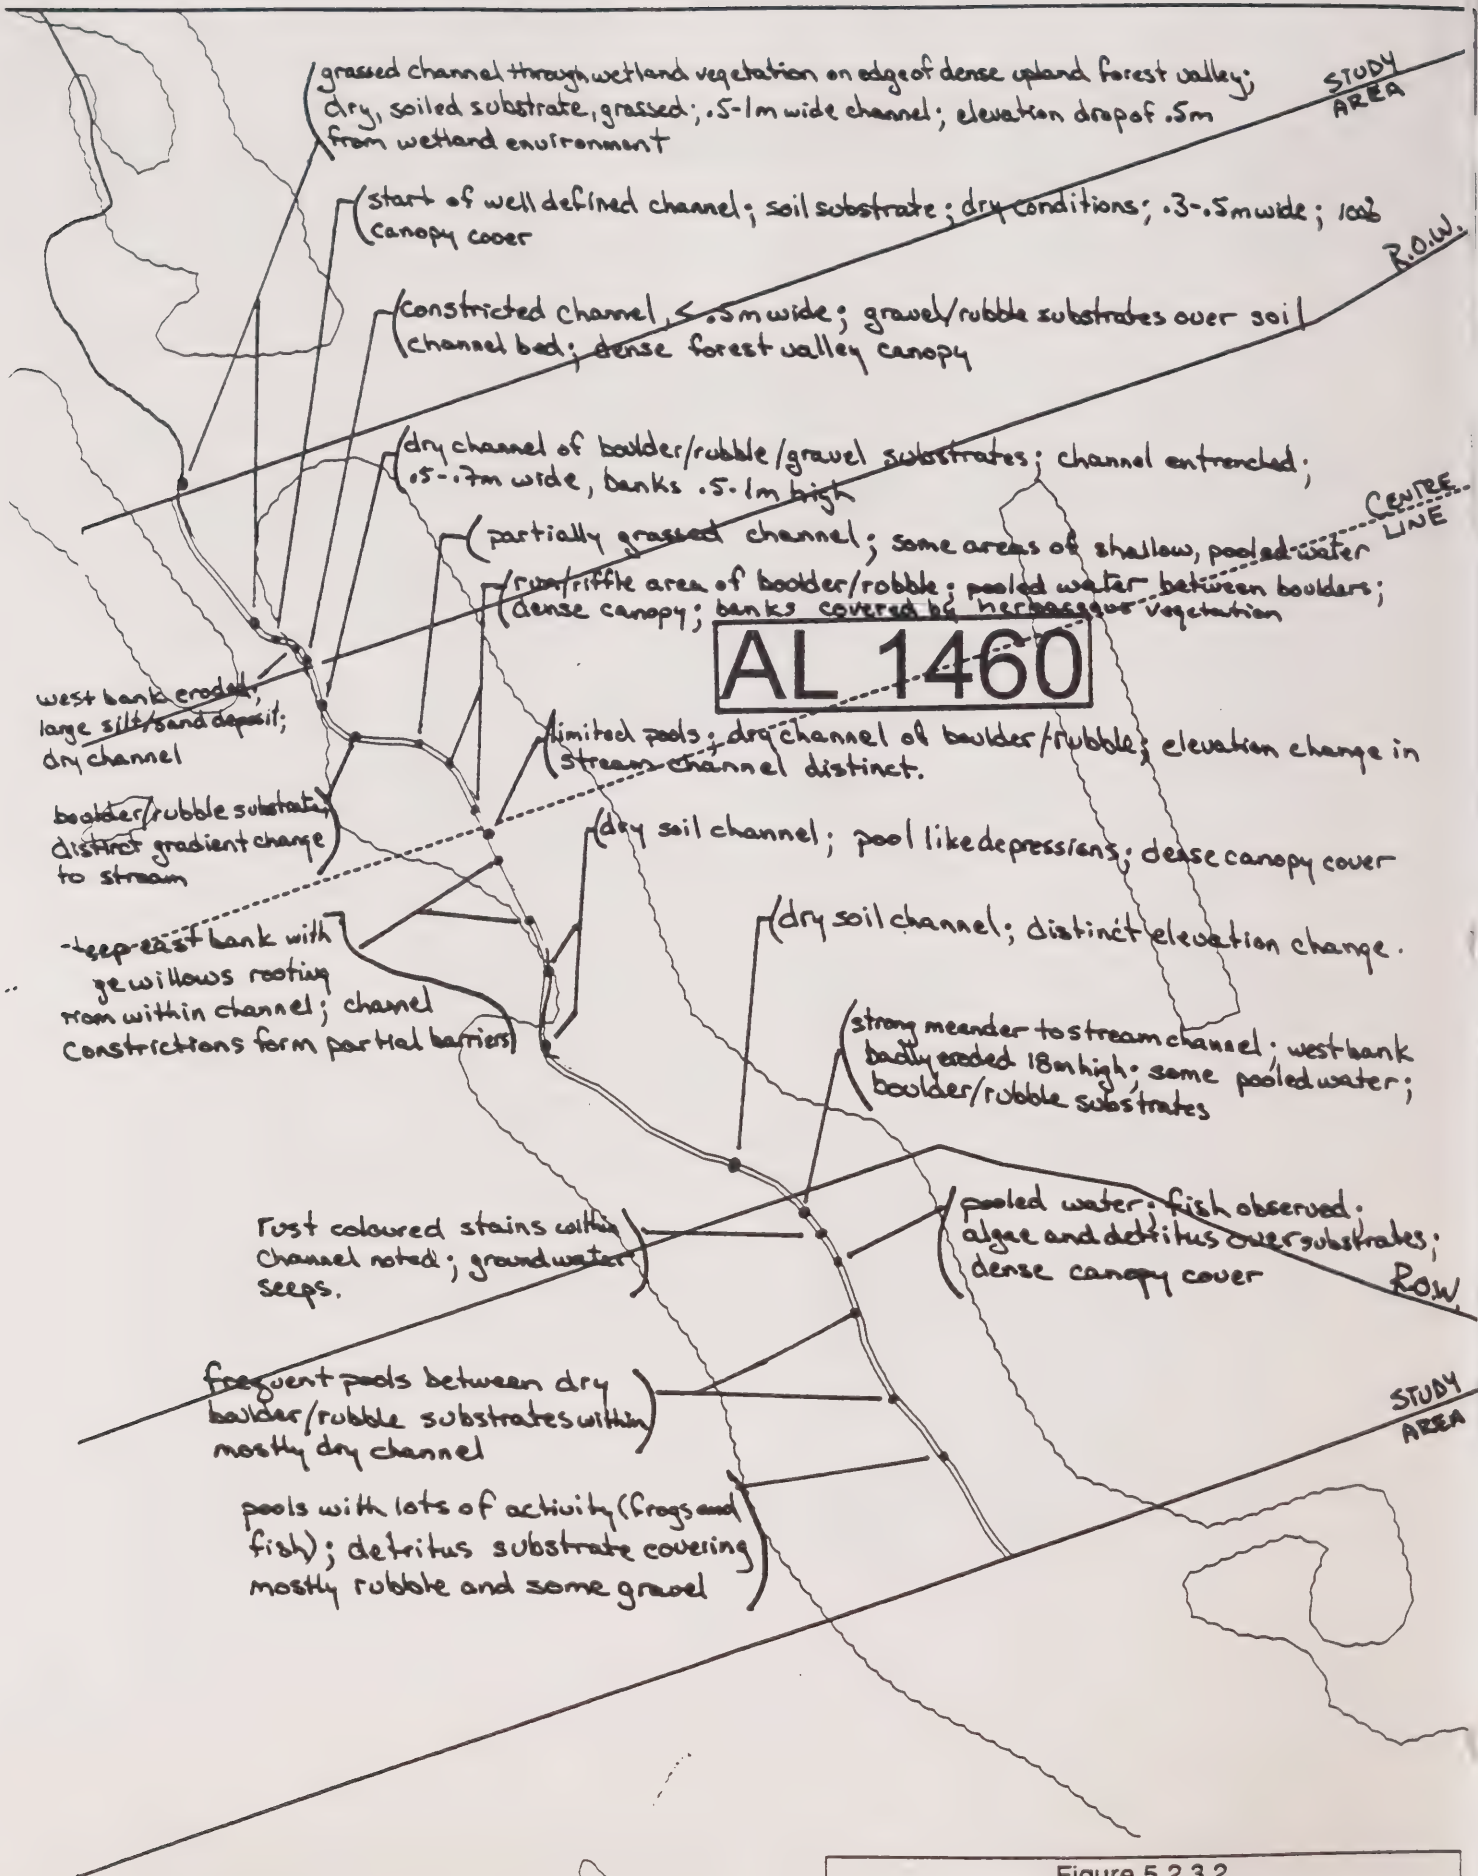 grassed channel through wetland vegetation on edge of dense upland forest valley;
dry, soiled substrate, grassed; .5-1m wide channel; elevation drop of .5m
from wetland environment
STUDY
AREA
start of well defined channel; soil substrate; dry conditions; .3-.5m wide;
canopy cover
R.O.W.
constricted channel, < .5m wide; gravel/rubble substrates over soil
channel bed; dense forest valley canopy
dry channel of boulder/rubble/gravel substrates; channel entrenched;
.5-.7m wide, banks .5-1m high
CENTRE
LINE
partially grassed channel; some areas of shallow, pooled water
run/riffle area of boulder/rubble; pooled water between boulders;
dense canopy; banks covered by herbaseous vegetation
AL 1460
west bank eroded;
large silt/sand deposit;
dry channel
limited pools; dry channel of boulder/rubble; elevation change in
stream channel distinct.
boulder/rubble substrate;
distinct gradient change
to stream
dry soil channel; pool like depressions; dense canopy cover
teep east bank with
ge willows rooting
from within channel; channel
constrictions form partial barriers
dry soil channel; distinct elevation change.
strong meander to stream channel; west bank
badly eroded 18m high; some pooled water;
boulder/rubble substrates
rust coloured stains within
channel noted; groundwater
seeps.
pooled water; fish observed;
algae and detritus over substrates;
dense canopy cover
R.O.W.
frequent pools between dry
boulder/rubble substrates within
mostly dry channel
STUDY
AREA
pools with lots of activity (frogs and
fish); detritus substrate covering
mostly rubble and some gravel
Figure 5.2.3.2